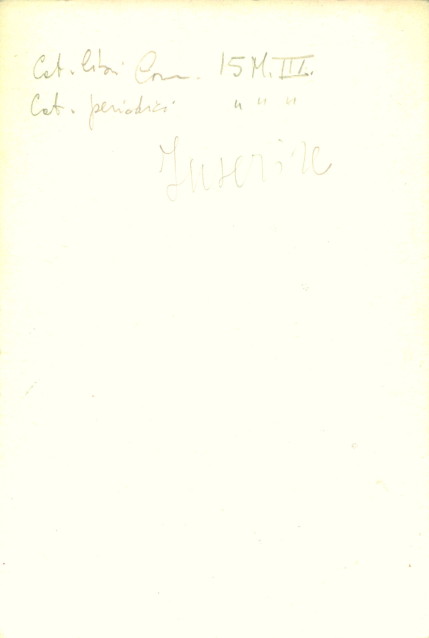 Cat. libri Com. 15 M. III.
Cat. periodici " " "
Inserire